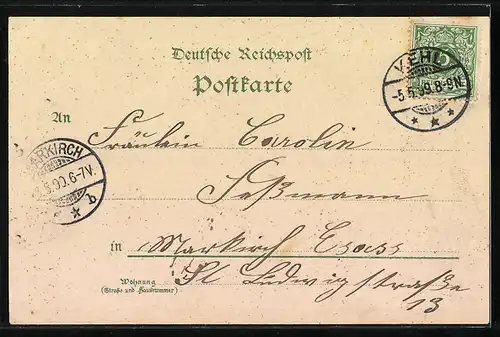 Deutsche Reichspost
Postkarte
KEHL
-5.5.99.8-9N.
An
Fräulein Carolin
MARKIRCH
5.99.6-7V.
b
in Markirch Elsass
Wohnung
(Straße und Hausnummer)
St Ludwigstraße
13